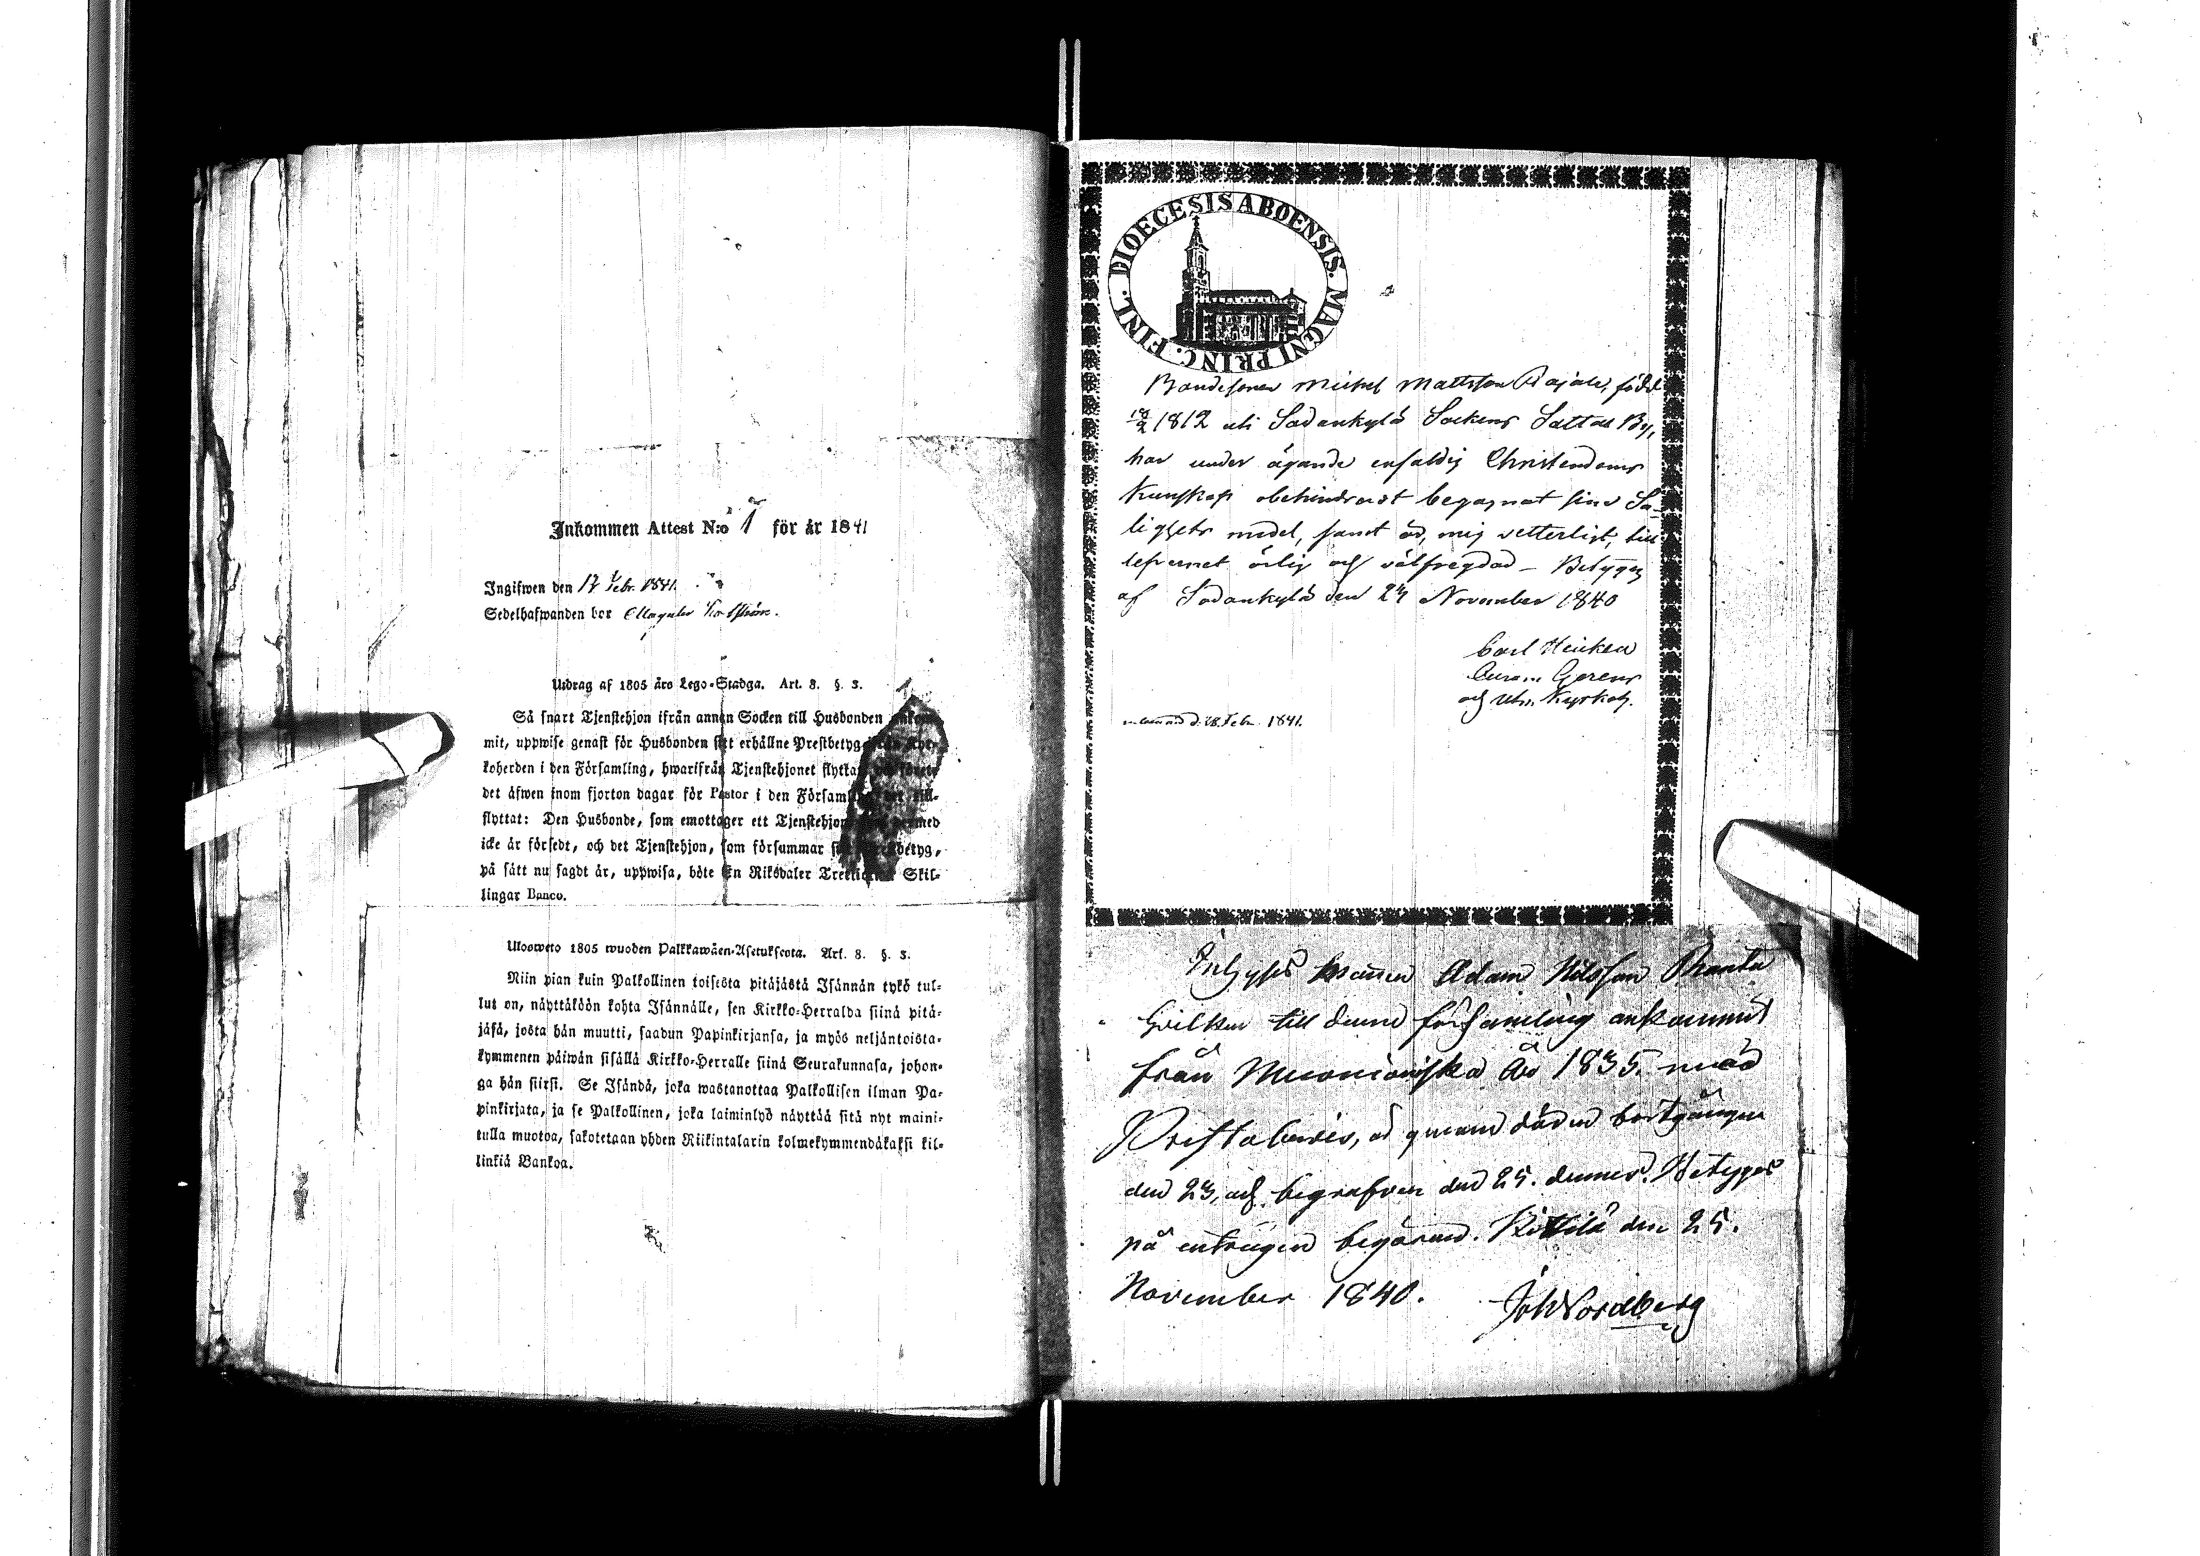 Inkommen Attest N:o 1 för år 1841
Ingifwen den 17 Febr. 1841.
Sedelhafwanden bor
Utdrag af 1805 års Lego-Stadga. Art. 8. §. 3.
Så snart Tjenstehjon ifrån annan Socken till Husbonden ankom-
mit, uppwise genast för Husbonden sitt erhållne Prestbetyg ifrån Kyr-
koherden i den Församling, hwarifrån Tjenstehjonet flyttat
det äfwen inom fjorton dagar för Pastor i den Församling det till-
flyttat: Den Husbonde, som emottager ett Tjenstehjon dermed
icke är försedt, och det Tjenstehjon, som försummar sitt Prestbetyg,
på sätt nu sagdt är, uppwisa, böte En Riksdaler Trettiotwå Skil-
lingar Banco.
Ulosweto 1805 wuoden Palkkawäen-Asetuksesta. Art. 8. §. 3.
Niin pian kuin Palkollinen toisesta pitäjästä Isännän tykö tul-
lut on, näyttäköön kohta Isännälle, sen Kirkko-Herralda siinä pitä-
jäsä, josta hän muutti, saadun Papinkirjansa, ja myös neljäntoista-
kymmenen päiwän sisällä Kirkko-Herralle siinä Seurakunnasa, johon-
ga hän siirsi. Se Isändä, joka wastanottaa Palkollisen ilman Pa-
pinkirjata, ja se Palkollinen, joka laiminlyö näyttää sitä nyt maini-
tulla muotoa, sakotetaan yhden Riikintalarin kolmekymmendäkaksi kil-
linkiä Bankoa.
DIOECESIS ABOENSIS. MAGNI PRINC. FINL.
Bondesonen Michel Mattsson Rajala, född
18/2 1812 uti Sodankylä Sockens Sattas By,
har under ägande enfaldig Christendoms
Kunskap obehindradt begagnat sina Sa-
lighets medel, samt är, mig vetterligt, till
lefvernet ärlig och välfrejdad – Betygas
af Sodankylä den 24 November 1840
Carl Heiken
och Utn. Kyrkoh.
d. 18. Febr. 1841.
Inhyses Adam Nilsson Ranta
hvilken till denna församling ankommit
från Muonioniska År 1835. med
Prestabevis, är genom döden bortgången
den 23, och begrafven den 25. dennes. Betygas
på enträgen begäran. Kittilä den 25.
November 1840. Joh Nordberg